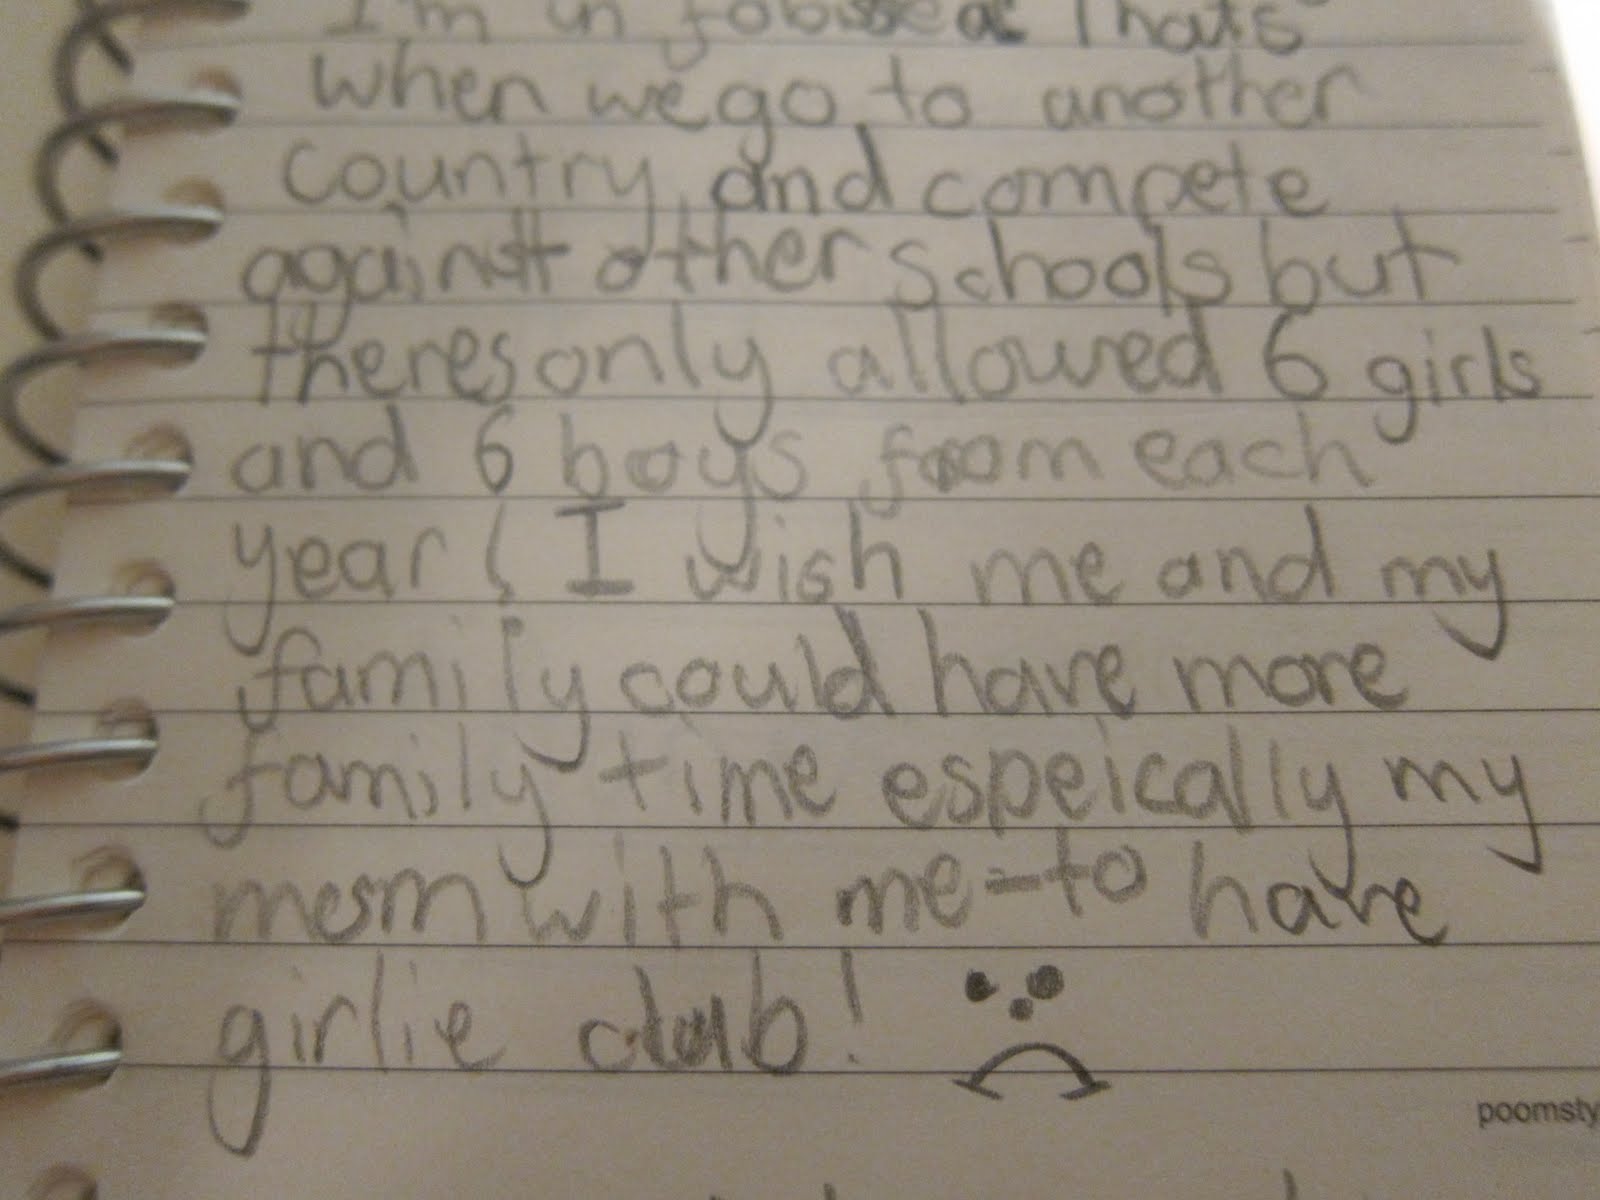 I'm in fobissea Thats
when we go to another
country and compete
against other schools but
theres only allowed 6 girls
and 6 boys from each
year! I wish me and my
family could have more
family time espeically my
mom with me-to have
girlie club!
poomsty